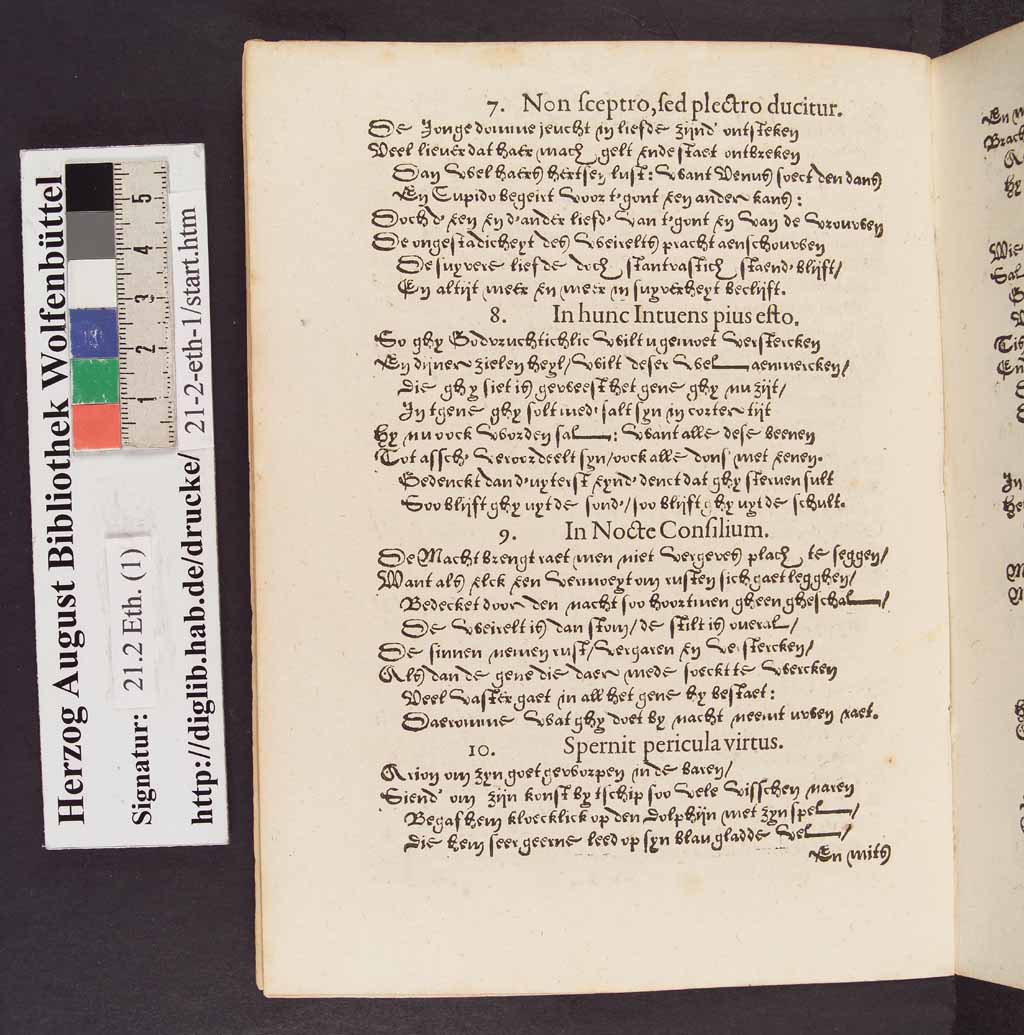 Herzog August Bibliothek Wolfenbüttel
Signatur: 21.2 Eth. (1)
http://diglib.hab.de/drucke/21-2-eth-1/start.htm
1 2 3 4 5
7. Non ſceptro, ſed plectro ducitur.
De Jonge domme jeucht in liefde zijnd' ontsteken
Veel liever dat haer mach gelt ende staet ontbreken
Dan wel haers hertsen lust: want Venus soeckt den dans
En Cupido begeirt voor t'gont een ander kans:
Doch d'een en d'ander liefd' van t'gont en van de vrouwen
De ongestadicheyt des weirelts pracht aenschouwen
De suyvere liefde doch stantvastich staend' blijft/
En altijt meer en meer in suyverheyt beclijft.
8. In hunc Intuens pius eſto.
So ghy Godvruchtichlic wilt u gemoet verstercken
En dijner zielen heyl/ wilt deser wel aenmercken/
die ghy siet is geweest het gene ghy nu zijt/
In tgene ghy solt med' salt syn in corter tijt
Hy nu oock worden sal: want alle dese beenen
Tot assch' veroordeelt syn/ oock alle dons met eenen.
Gedenckt dan d'uyterst eynd' denct dat ghy sterven sult
Soo blijft ghy uyt de sond'/ soo blijft ghy uyt de schult.
9. In Nocte Conſilium.
De Nacht brengt raet men niet vergeves plach te seggen/
Want als elck een vermoeyt om rusten sich gaet legghen/
Bedecket door den nacht soo hoortmen gheen gheschal/
De weirelt is dan stom/ de stilt is overal/
De sinnen nemen rust/ vergaren en verstercken/
Als dan de gene die daer mede soeckt te wercken
Veel vaster gaet in all het gene hy bestaet:
Daeromme wat ghy doet by nacht neemt uwen raet.
10. Spernit pericula virtus.
Arion om zyn goet geworpen in de baren/
Siend' om zijn konst by tschip soo vele visschen varen
Begaf hem kloecklick op den dolphijn met zyn spel/
die hem seer geerne leed op syn blau gladde vel/
En mits